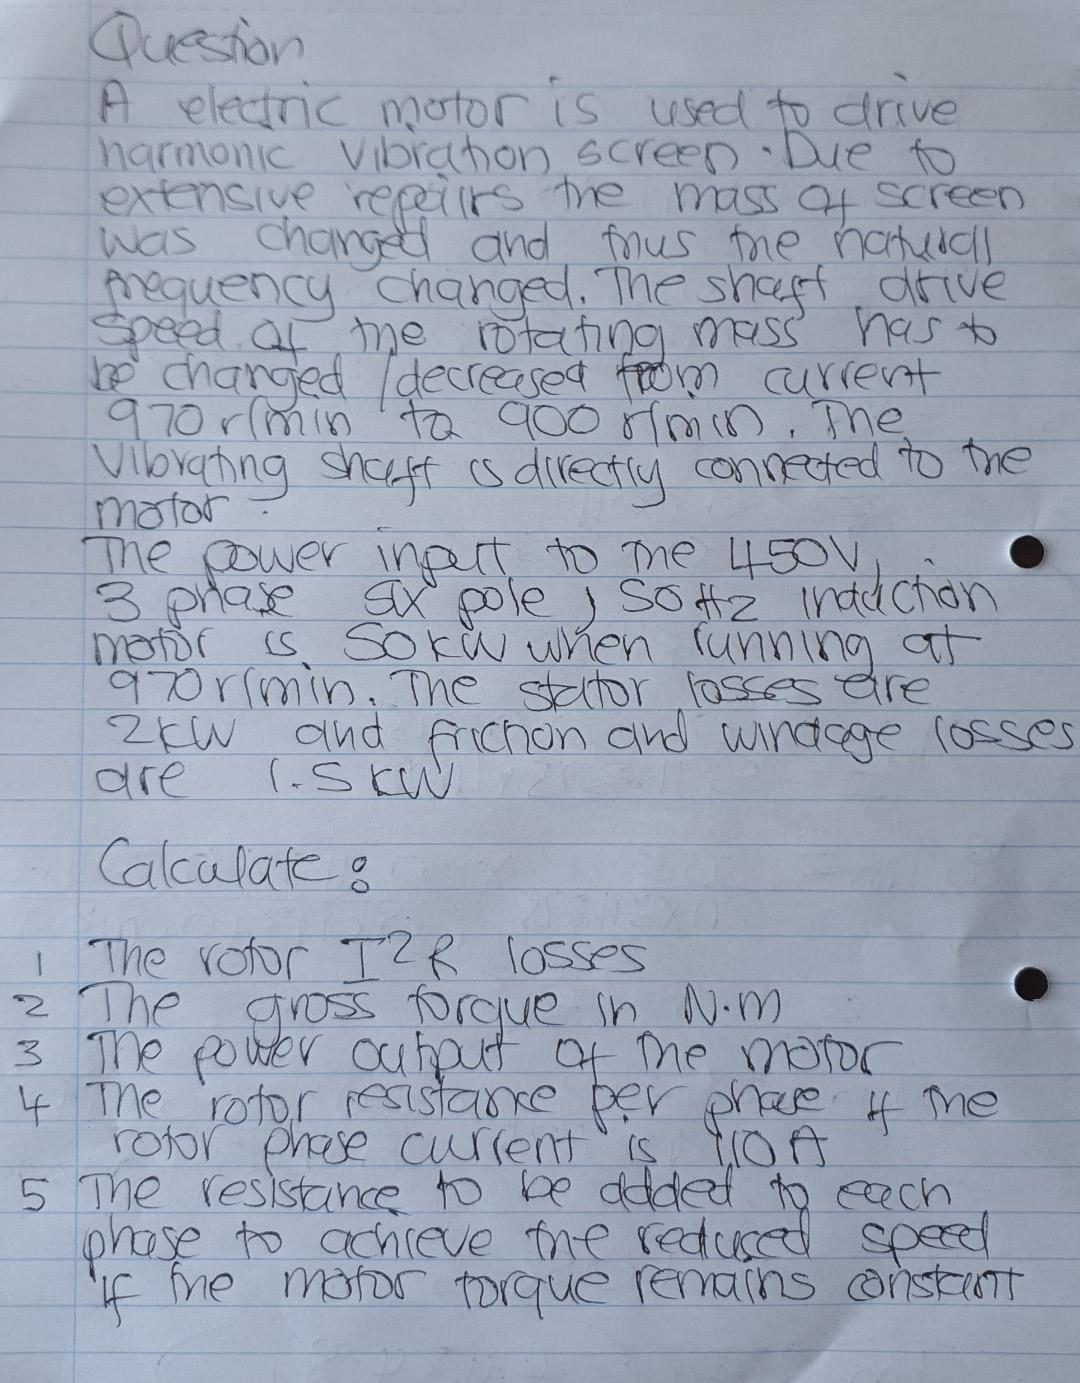 Question
A electric motor is used to drive
harmonic vibration screen. Due to
extensive repairs the mass of screen
was changed and thus the natural
frequency changed. The shaft drive
speed of the rotating mass has to
be changed / decreased from current
970 r/min to 900 r/min. The
Vibrating shaft is directly connected to the
motor.
The power input to the 450V,
3 phase six pole, 50Hz induction
motor is 50kW when running at
970r/min. The stator losses are
2kW and friction and windage losses
are 1.5 kW
Calculate:
1 The rotor I²R losses
2 The gross torque in N.m
3 The power output of the motor
4 The rotor resistance per phase if the
rotor phase current is 110 A
5 The resistance to be added to each
phase to achieve the reduced speed
if the motor torque remains constant